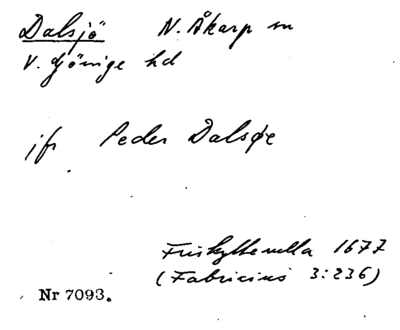 Dalsjö N. Åkarp sn
V. Göinge hd
jfr Peder Dalsøe
Friskytterulla 1677
(Fabricius 3:236)
Nr 7093.